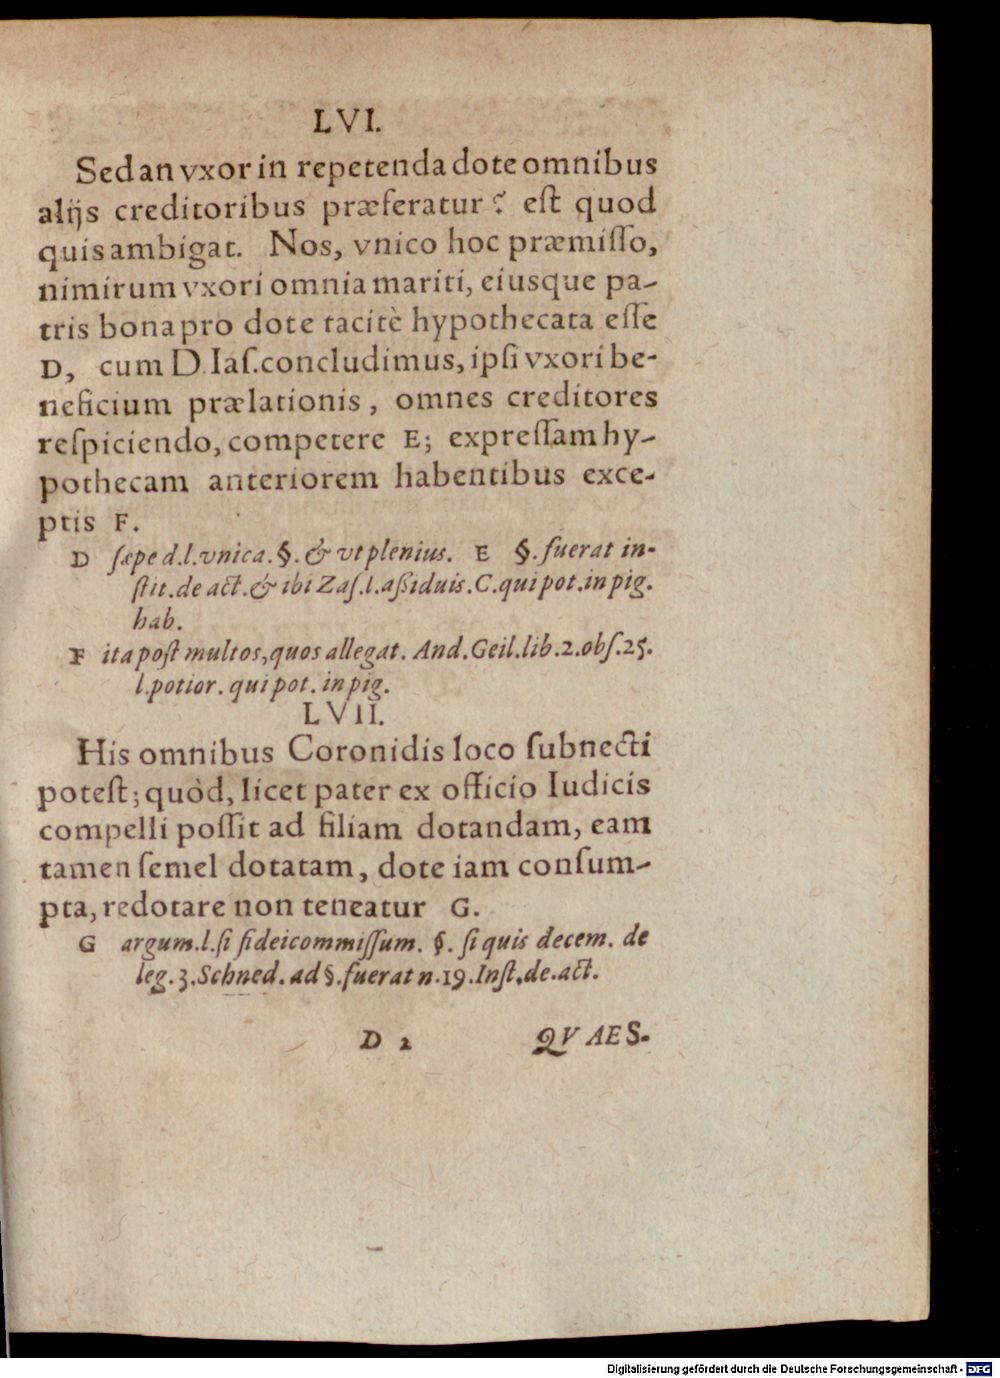 LVI.
Sed an vxor in repetenda dote omnibus
alijs creditoribus præferatur? est quod
quis ambigat. Nos, vnico hoc præmisso,
nimirum vxori omnia mariti, eiusque pa-
tris bona pro dote tacitè hypothecata esse
D, cum D. Ias. concludimus, ipsi vxori be-
neficium prælationis, omnes creditores
respiciendo, competere E; expressam hy-
pothecam anteriorem habentibus exce-
ptis F.
D sæpe d.l.vnica.§. & vt plenius. E §. fuerat in-
stit. de act. & ibi Zas. l. aßiduis. C. qui pot. in pig.
hab.
F ita post multos, quos allegat. And. Geil. lib. 2. obs. 25.
l. potior. qui pot. in pig.
LVII.
His omnibus Coronidis loco subnecti
potest; quòd, licet pater ex officio Iudicis
compelli possit ad filiam dotandam, eam
tamen semel dotatam, dote iam consum-
pta, redotare non teneatur G.
G argum. l. si fideicommissum. §. si quis decem. de
leg. 3. Schned. ad §. fuerat n. 19. Inst. de. act.
D 2 QVAES-
Digitalisierung gefördert durch die Deutsche Forschungsgemeinschaft - DFG